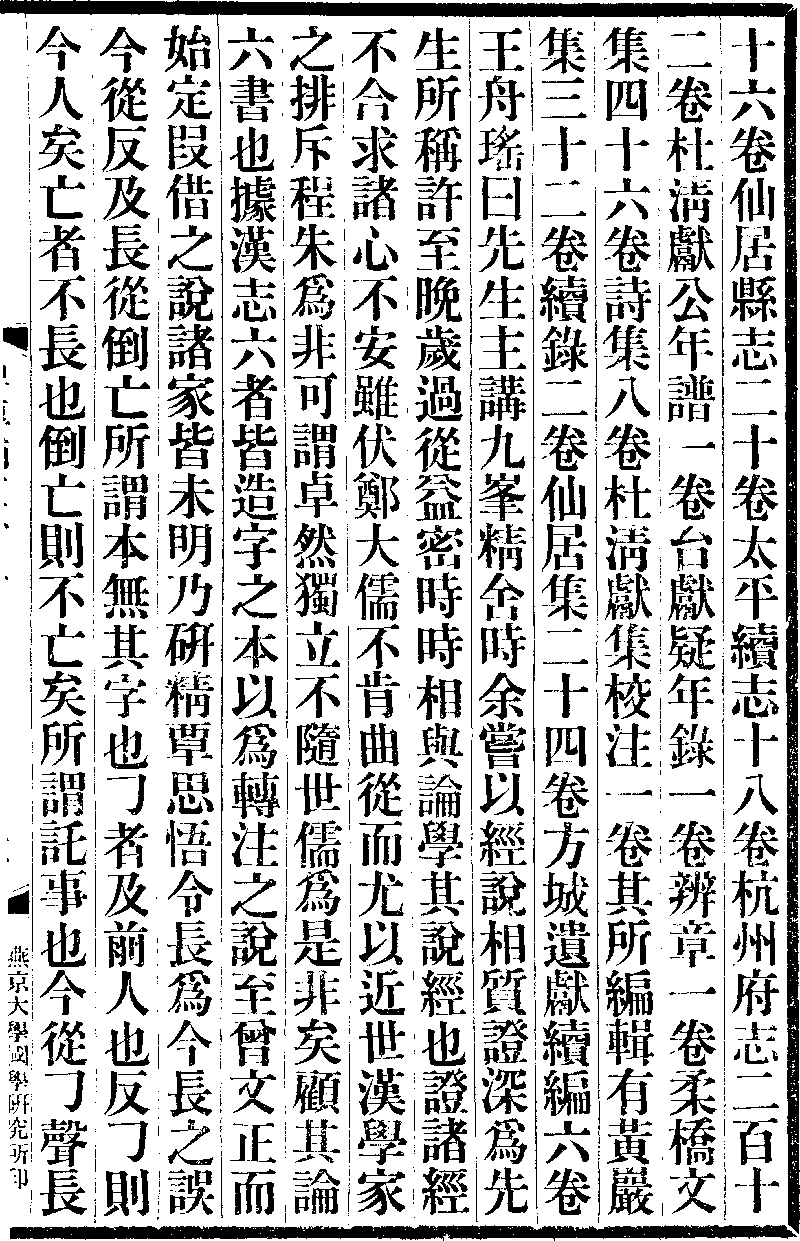 十六卷仙居縣志二十卷太平續志十八卷杭州府志二百十
二卷杜淸獻公年譜一卷台獻疑年錄一卷辨章一卷柔橋文
集四十六卷詩集八卷杜淸獻集校注一卷其所編輯有黃巖
集三十二卷續錄二卷仙居集二十四卷方城遺獻續編六卷
王舟瑤曰先生主講九峯精舍時余嘗以經說相質證深爲先
生所稱許至晚歲過從益密時時相與論學其說經也證諸經
不合求諸心不安雖伏鄭大儒不肯曲從而尤以近世漢學家
之排斥程朱爲非可謂卓然獨立不隨世儒爲是非矣顧其論
六書也據漢志六者皆造字之本以爲轉注之說至曾文正而
始定叚借之說諸家皆未明乃硏精覃思悟令長爲今長之誤
今從反及長從倒亡所謂本無其字也𠄎者及前人也反𠄎則
今人矣亡者不長也倒亡則不亡矣所謂託事也今從𠄎聲長
燕京大學國學硏究所印